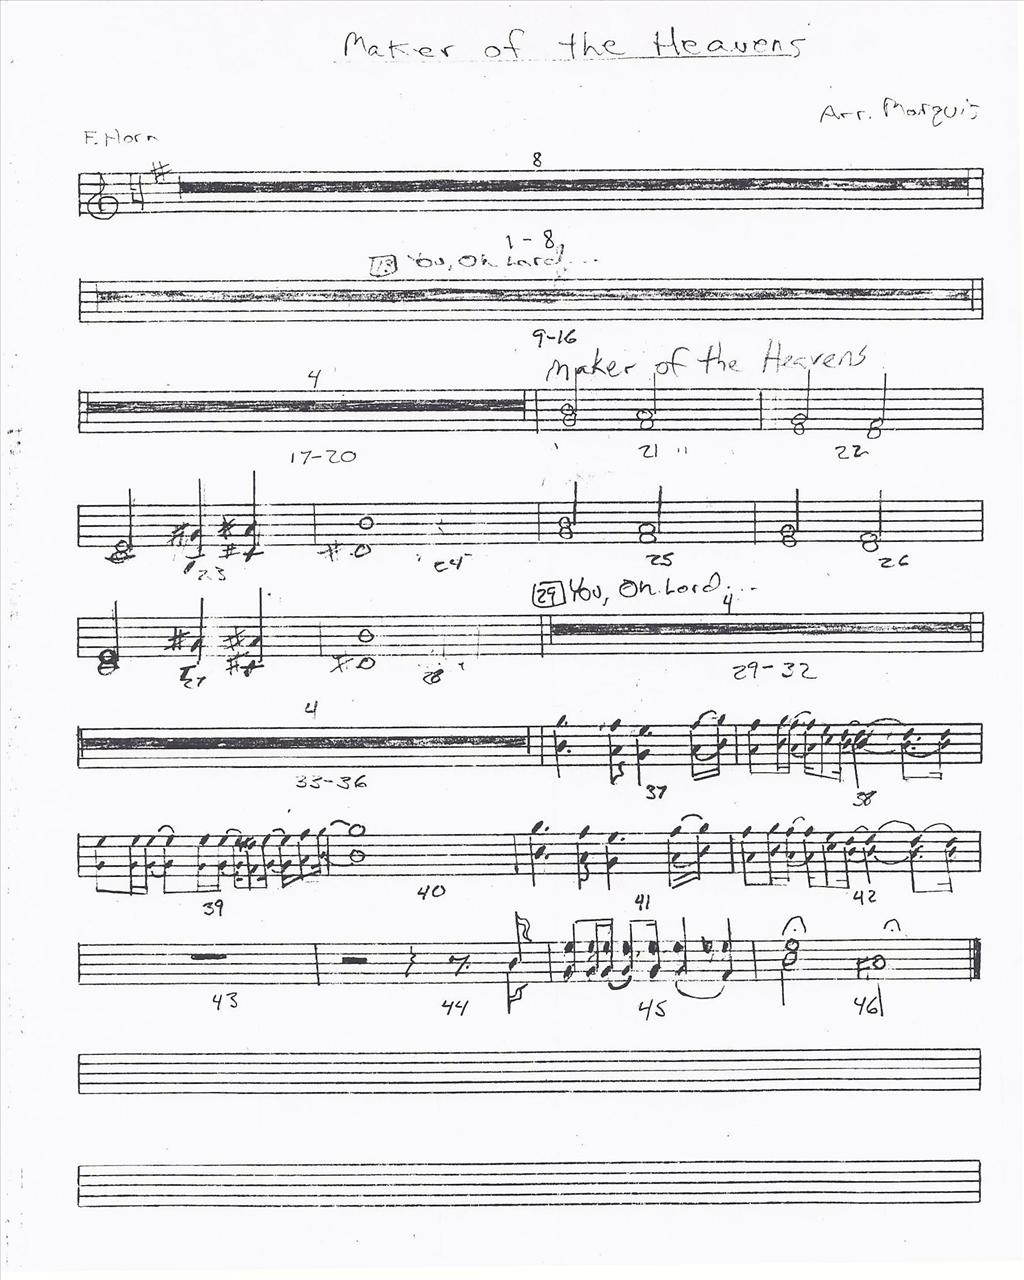 Maker of the Heavens
Arr. Marquis
F. Horn
8
1-8
13 You, Oh Lord,...
9-16
Maker of the Heavens
4
17-20 21 22
23 24 25 26
29 You, Oh Lord,...
4
27 28 29-32
4
33-36 37 38
39 40 41 42
43 44 45 46